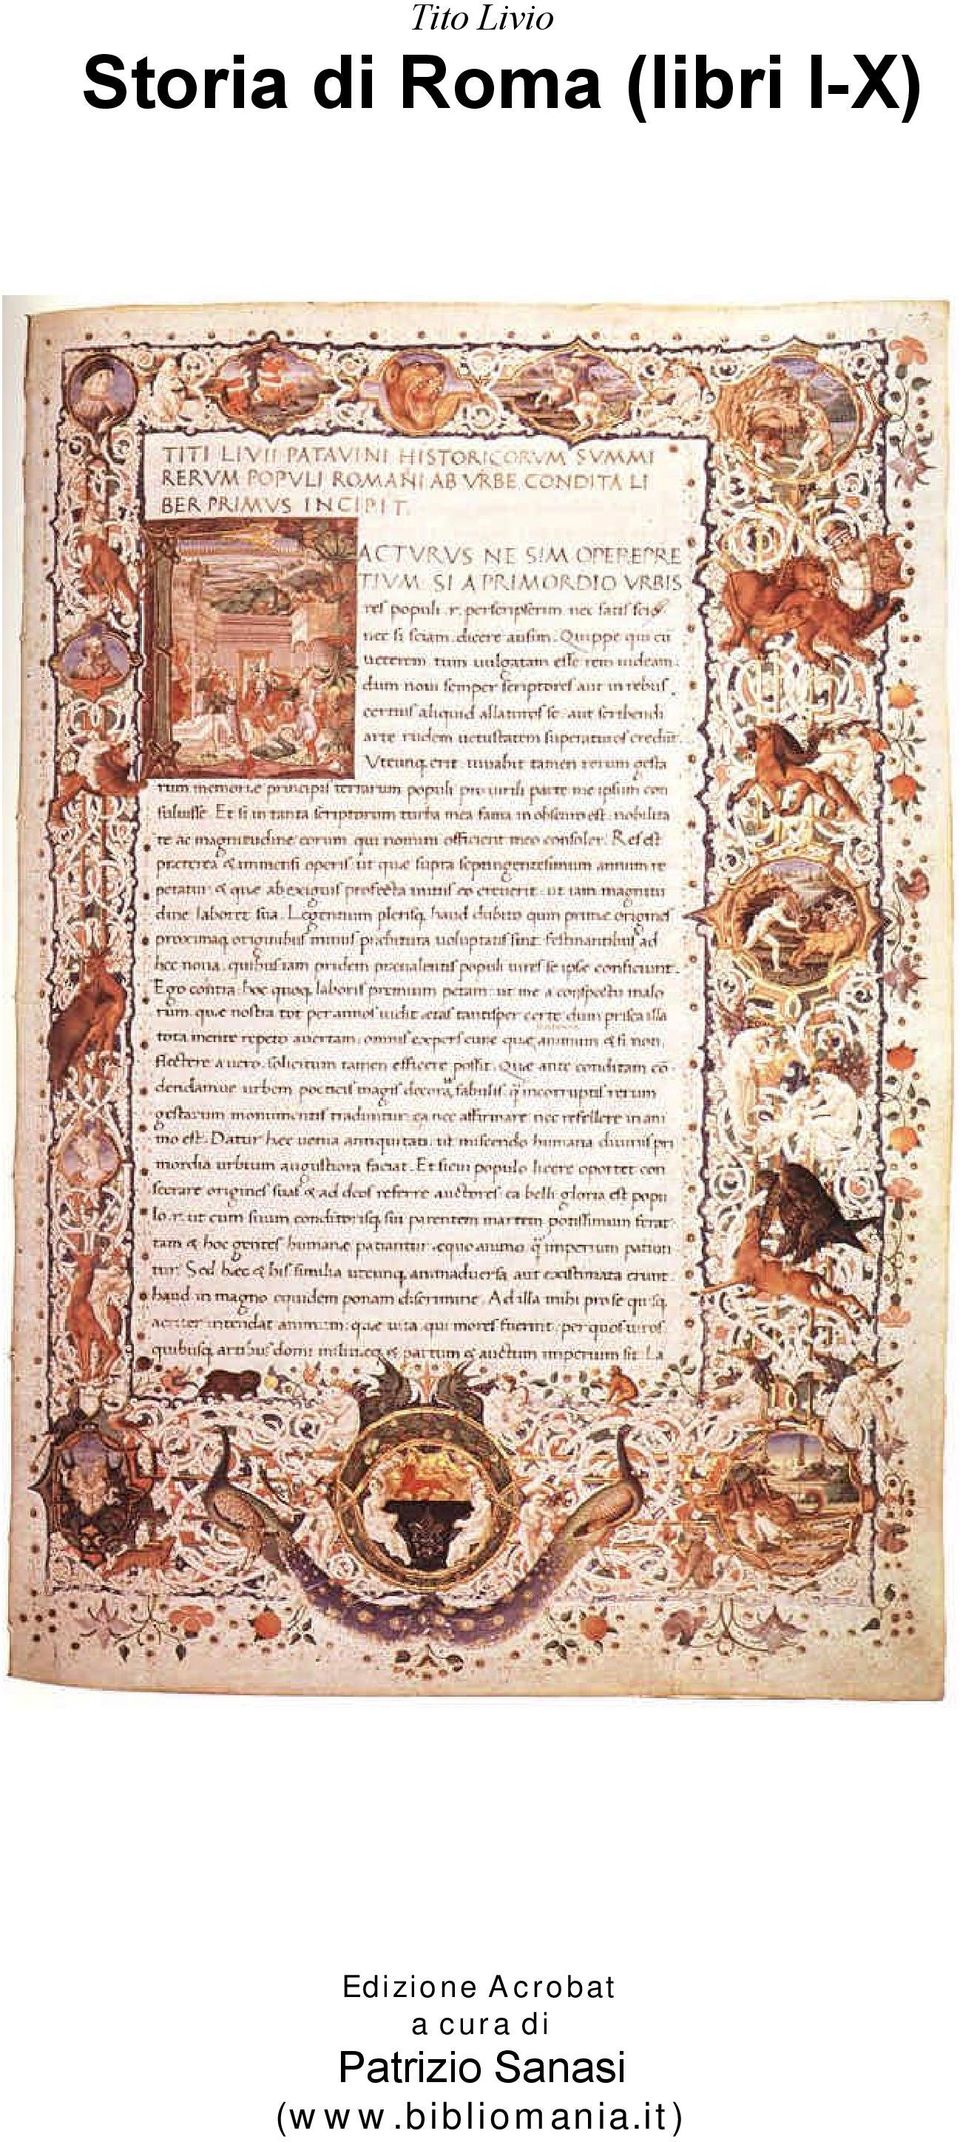 Tito Livio
Storia di Roma (libri I-X)
TITI LIVII PATAVINI HISTORICORVM SVMMI
RERVM POPVLI ROMANI AB VRBE CONDITA LI
BER PRIMVS INCIPIT.
ACTVRVS NE SIM OPEREPRE
TIVM SI A PRIMORDIO VRBIS
res populi .r. perscripserim nec satis scio
nec si sciam dicere ausim. Quippe qui cu
ueterem tum uulgatam esse rem uideam
dum noui semper scriptores aut in rebus
certius aliquid allaturos se aut scribendi
arte rudem uetustatem superaturos credut.
Vtcunq erit iuuabit tamen rerum gesta
rum memorie principis terrarum populi pro uirili parte me ipsum con
suluisse. Et si in tanta scriptorum turba mea fama in obscuro est, nobilita
te ac magnitudine eorum qui nomini officient meo consoler. Res est
præterea & immensi operis ut quæ supra septingentesimum annum re
petatur & quæ ab exiguis profecta initiis eo creuerit ut iam magnitu
dine laboret sua. Legentium plerisq haud dubito quin prime origines
proximaq originibus minus præbitura uoluptatis sint festinantibus ad
hec noua quibus iam pridem preualentis populi uires se ipse conficiunt.
Ego contra hoc quoq laboris premium petam ut me a conspectu malo
rum quæ nostra tot per annos uidit ætas tantisper certe dum prisca illa
tota mente repeto auertam omnis expers cure quæ animum & si non
flectere a uero solicitum tamen efficere possit. Quæ ante conditam co
dendamue urbem poeticis magis decora fabulis q incorruptis rerum
gestarum monumentis traduntur ea nec affirmare nec refellere in ani
mo est. Datur hæc uenia antiquitati ut miscendo humana diuinis pri
mordia urbium augustiora faciat. Et si cui populo licere oportet con
secrare origines suas & ad deos referre auctores ea belli gloria est popu
lo .r. ut cum suum conditorisq sui parentem martem potissimum ferat
tam & hoc gentes humanæ patiantur æquo animo q imperium patiun
tur. Sed hæc & his similia utcunq animaduersa aut existimata erunt
haud in magno equidem ponam discrimine. Ad illa mihi pro se quisq
acriter intendat animum quæ uita qui mores fuerint per quos uiros
quibusq artibus domi militieq & partum & auctum imperium sit. La
Edizione Acrobat
a cura di
Patrizio Sanasi
(www.bibliomania.it)